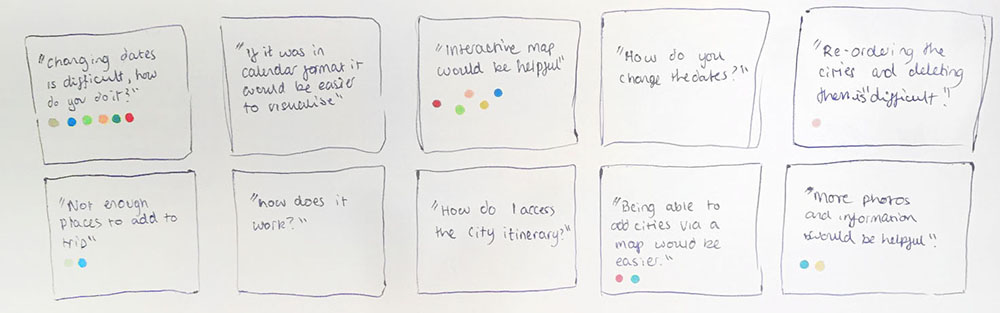 "Changing dates
is difficult, how
do you do it?"
"If it was in
calendar format it
would be easier
to visualise"
"Interactive map
would be helpful"
"How do you
change the dates?"
"Re-ordering the
cities and deleting
them is difficult!"
"Not enough
places to add to
trip"
"how does it
work?"
"How do I access
the City itinerary?"
"Being able to
add cities via a
map would be
easier."
"More photos
and information
would be helpful".